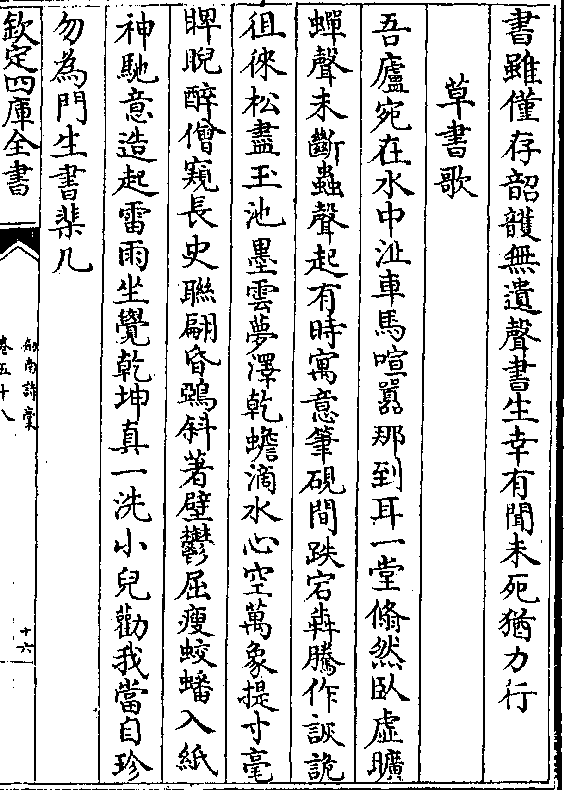 書雖僅存韶頀無遺聲書生幸有聞未死猶力行
草書歌
吾廬宛在水中沚車馬喧囂那到耳一堂翛然臥虛曠
蟬聲未斷蟲聲起有時寓意筆硯間跌宕犇騰作詼詭
徂徠松盡玉池墨雲夢澤乾蟾滴水心空萬象提寸毫
睥睨醉僧窺長史聯翩昏鵶斜著壁鬱屈瘦蛟蟠入紙
神馳意造起雷雨坐覺乾坤真一洗小兒勸我當自珍
勿為門生書棐几
欽定四庫全書
劍南詩稾
卷五十八
十六